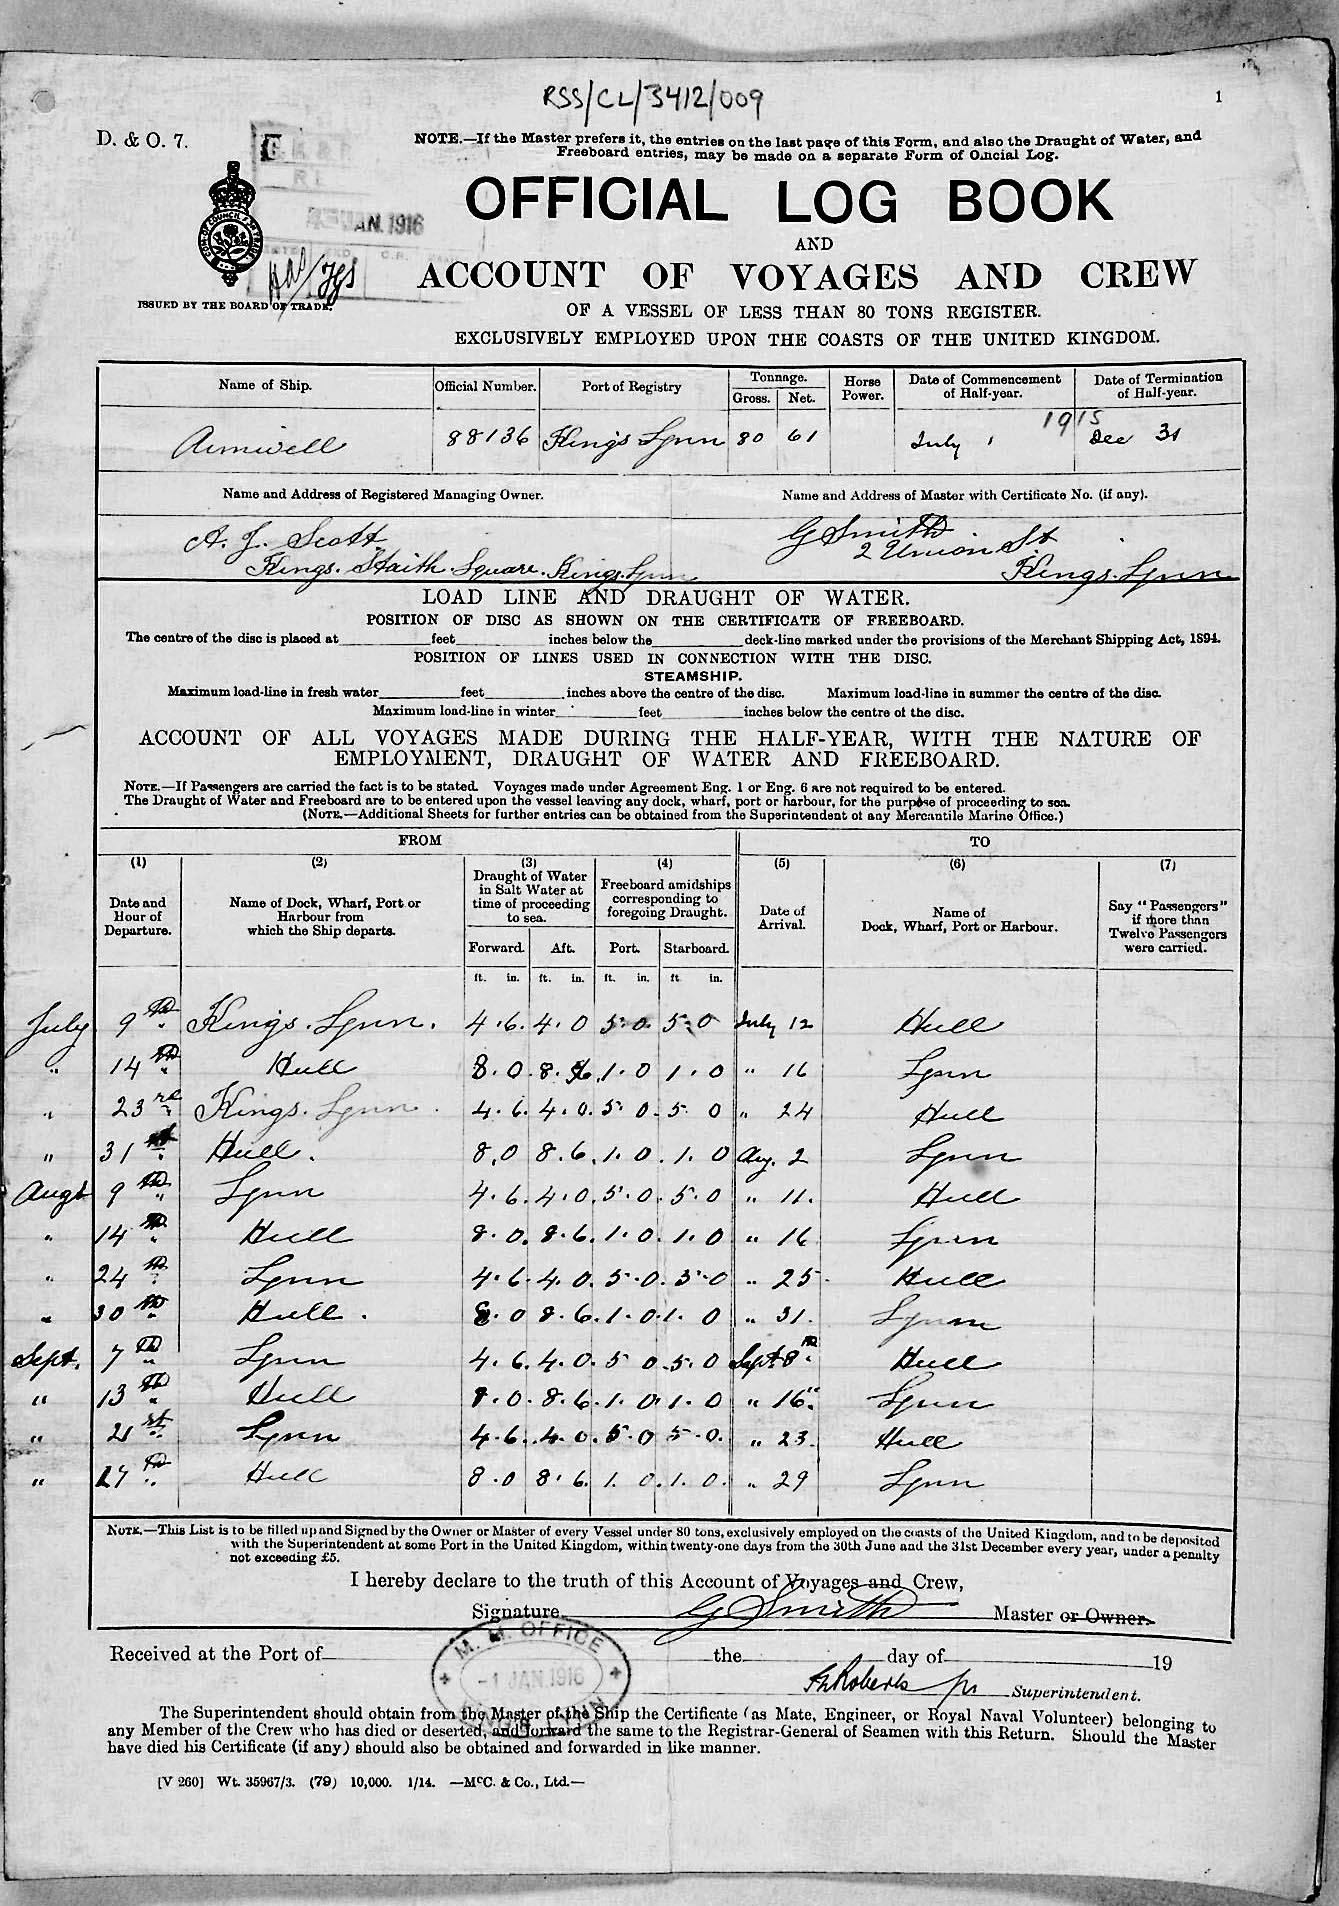 RSS/CL/3412/009
1
D. & O. 7.
NOTE.—If the Master prefers it, the entries on the last page of this Form, and also the Draught of Water, and
Freeboard entries, may be made on a separate Form of Official Log.
OFFICIAL LOG BOOK
JAN. 1916
AND
ACCOUNT OF VOYAGES AND CREW
ISSUED BY THE BOARD OF TRADE.
OF A VESSEL OF LESS THAN 80 TONS REGISTER.
EXCLUSIVELY EMPLOYED UPON THE COASTS OF THE UNITED KINGDOM.
Name of Ship. Official Number. Port of Registry Tonnage. Gross. Net. Horse Power. Date of Commencement of Half-year. Date of Termination of Half-year.
1915
Aimwell 88136 Kings Lynn 80 61 July 1 Dec 31
Name and Address of Registered Managing Owner. Name and Address of Master with Certificate No. (if any).
A. J. Scott G Smith
2 Union St
Kings. Staith. Square. Kings. Lynn Kings. Lynn
LOAD LINE AND DRAUGHT OF WATER.
POSITION OF DISC AS SHOWN ON THE CERTIFICATE OF FREEBOARD.
The centre of the disc is placed at feet inches below the deck-line marked under the provisions of the Merchant Shipping Act, 1894.
POSITION OF LINES USED IN CONNECTION WITH THE DISC.
STEAMSHIP.
Maximum load-line in fresh water feet inches above the centre of the disc. Maximum load-line in summer the centre of the disc.
Maximum load-line in winter feet inches below the centre of the disc.
ACCOUNT OF ALL VOYAGES MADE DURING THE HALF-YEAR, WITH THE NATURE OF
EMPLOYMENT, DRAUGHT OF WATER AND FREEBOARD.
NOTE.—If Passengers are carried the fact is to be stated. Voyages made under Agreement Eng. 1 or Eng. 6 are not required to be entered.
The Draught of Water and Freeboard are to be entered upon the vessel leaving any dock, wharf, port or harbour, for the purpose of proceeding to sea.
(NOTE.—Additional Sheets for further entries can be obtained from the Superintendent of any Mercantile Marine Office.)
FROM TO
(1) (2) (3) (4) (5) (6) (7)
Date and Hour of Departure. Name of Dock, Wharf, Port or Harbour from which the Ship departs. Draught of Water in Salt Water at time of proceeding to sea. Freeboard amidships corresponding to foregoing Draught. Date of Arrival. Name of Dock, Wharf, Port or Harbour. Say "Passengers" if more than Twelve Passengers were carried.
Forward. Aft. Port. Starboard.
ft. in. ft. in. ft. in. ft in.
July 9th Kings. Lynn. 4.6. 4.0 5.0. 5.0 July 12 Hull
" 14th Hull 8.0. 8.6. 1.0 1.0 " 16 Lynn
" 23rd Kings. Lynn. 4.6. 4.0. 5.0. 5.0 " 24 Hull
" 31st Hull. 8.0 8.6. 1.0. 1.0 Aug. 2 Lynn
Augt 9th Lynn 4.6. 4.0. 5.0. 5.0 " 11. Hull
" 14th Hull 8.0. 8.6. 1.0. 1.0 " 16 Lynn
" 24th Lynn 4.6. 4.0. 5.0. 5.0 " 25. Hull
" 30th Hull. 8.0 8.6. 1.0. 1.0 " 31. Lynn
Sept. 7th Lynn 4.6. 4.0. 5 0. 5.0 Sept 8th Hull
" 13th Hull 8.0. 8.6. 1.0. 1.0 " 16. Lynn
" 21st Lynn 4.6. 4.0. 5.0 5.0. " 23. Hull
" 27th Hull 8.0 8.6. 1.0. 1.0. " 29 Lynn
NOTE.—This List is to be filled up and Signed by the Owner or Master of every Vessel under 80 tons, exclusively employed on the coasts of the United Kingdom, and to be deposited
with the Superintendent at some Port in the United Kingdom, within twenty-one days from the 30th June and the 31st December every year, under a penalty
not exceeding £5.
I hereby declare to the truth of this Account of Voyages and Crew,
Signature G Smith Master or Owner.
M. M. OFFICE
Received at the Port of the day of 19
-1 JAN 1916
Roberts Superintendent.
KING'S LYNN
The Superintendent should obtain from the Master of the Ship the Certificate (as Mate, Engineer, or Royal Naval Volunteer) belonging to
any Member of the Crew who has died or deserted, and forward the same to the Registrar-General of Seamen with this Return. Should the Master
have died his Certificate (if any) should also be obtained and forwarded in like manner.
[V 260] Wt. 35967/3. (79) 10,000. 1/14. —McC. & Co., Ltd.—